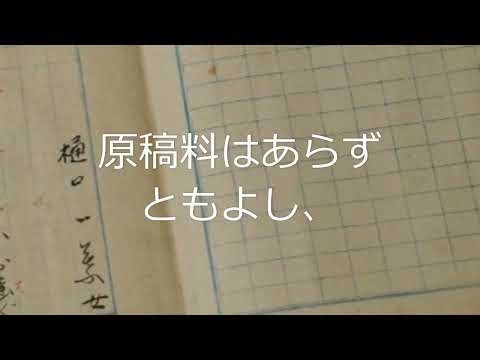 原稿料はあらず
ともよし、
樋口一葉女